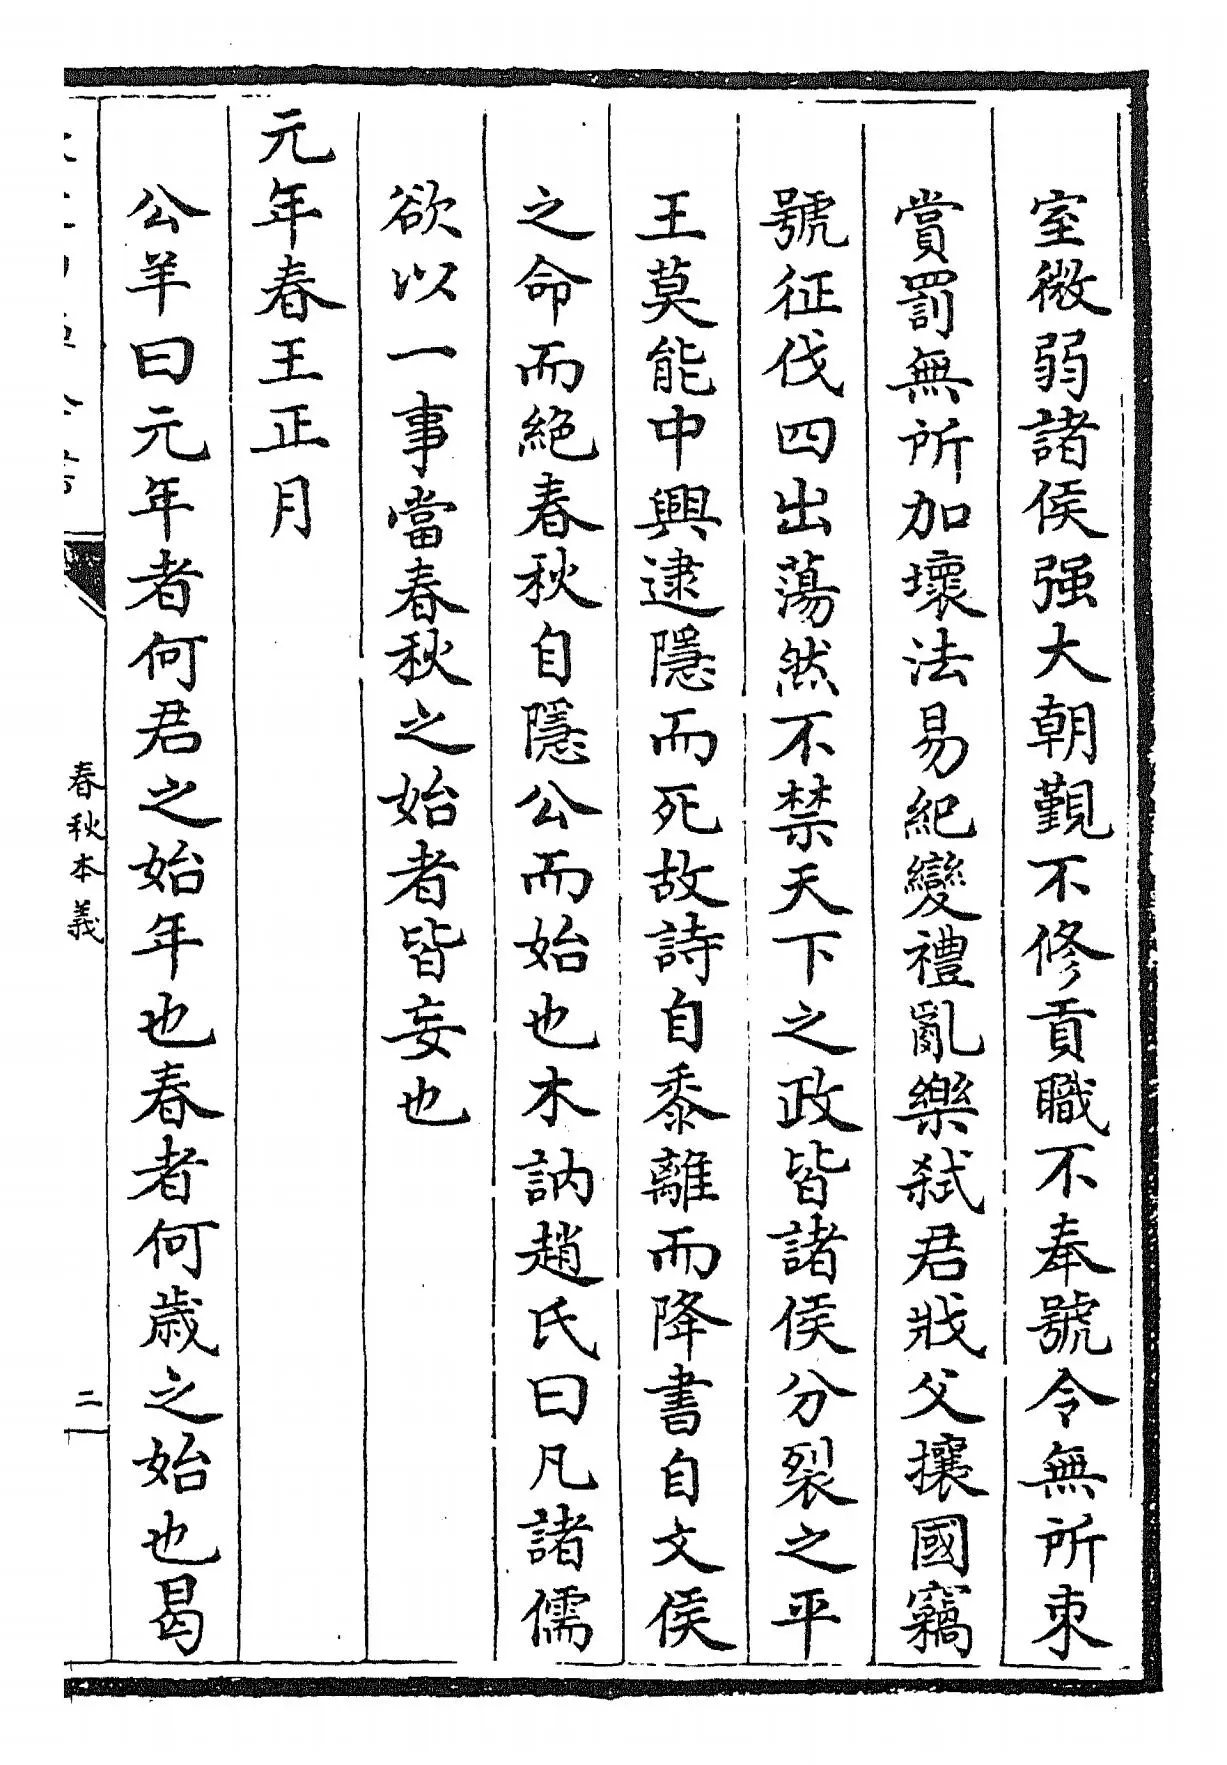 室微弱諸侯强大朝覲不修貢職不奉號令無所束
賞罰無所加壞法易紀變禮亂樂弑君戕父攘國竊
號征伐四出蕩然不禁天下之政皆諸侯分裂之平
王莫能中興逮隱而死故詩自黍離而降書自文侯
之命而絶春秋自隱公而始也木訥趙氏曰凡諸儒
欲以一事當春秋之始者皆妄也
元年春王正月
公羊曰元年者何君之始年也春者何歲之始也曷
春秋本義
二